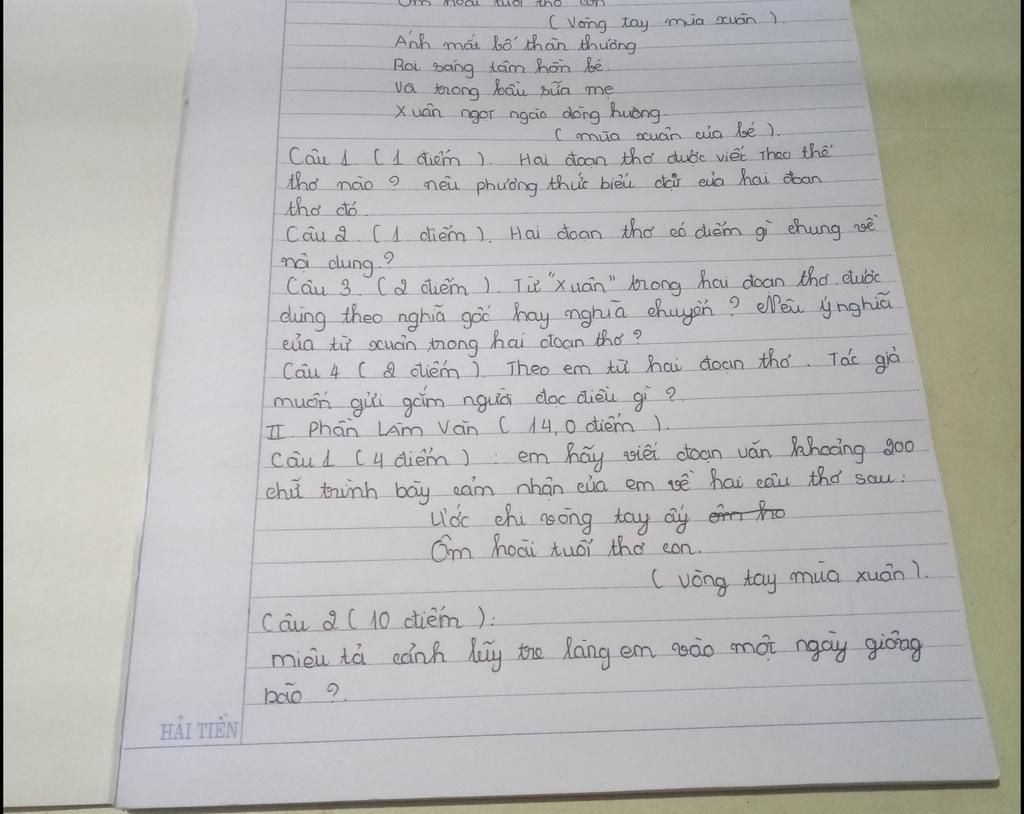 Ôm hoài tuổi thơ con
( Vòng tay mùa xuân ).
Ánh mắt bố thân thương
Rọi sáng tâm hồn bé.
Và trong bầu sữa mẹ
Xuân ngọt ngào dòng hương.
( mùa xuân của bé ).
Câu 1. ( 1 điểm ). Hai đoạn thơ được viết Theo thể
thơ nào ? nêu phương thức biểu đạt của hai đoạn
thơ đó.
Câu 2. ( 1. điểm ). Hai đoạn thơ có điểm gì chung về
nội dung.?
Câu 3. ( 2 điểm ). Từ "Xuân" trong hai đoạn thơ. được
dùng theo nghĩa gốc hay nghĩa chuyển ? Nêu ý nghĩa
của từ xuân trong hai đoạn thơ ?
Câu 4 ( 2 điểm ). Theo em từ hai đoạn thơ. Tác giả
muốn gửi gắm người đọc điều gì ?
II. Phần Làm Văn ( 14,0 điểm ).
Câu 1 ( 4 điểm ) : em hãy viết đoạn văn khoảng 200
chữ trình bày cảm nhận của em về hai câu thơ sau:
Ước chi vòng tay ấy
Ôm hoài tuổi thơ con.
( Vòng tay mùa xuân ).
Câu 2 ( 10 điểm ):
miêu tả cảnh lũy tre làng em vào một ngày giông
bão ?.
HẢI TIẾN